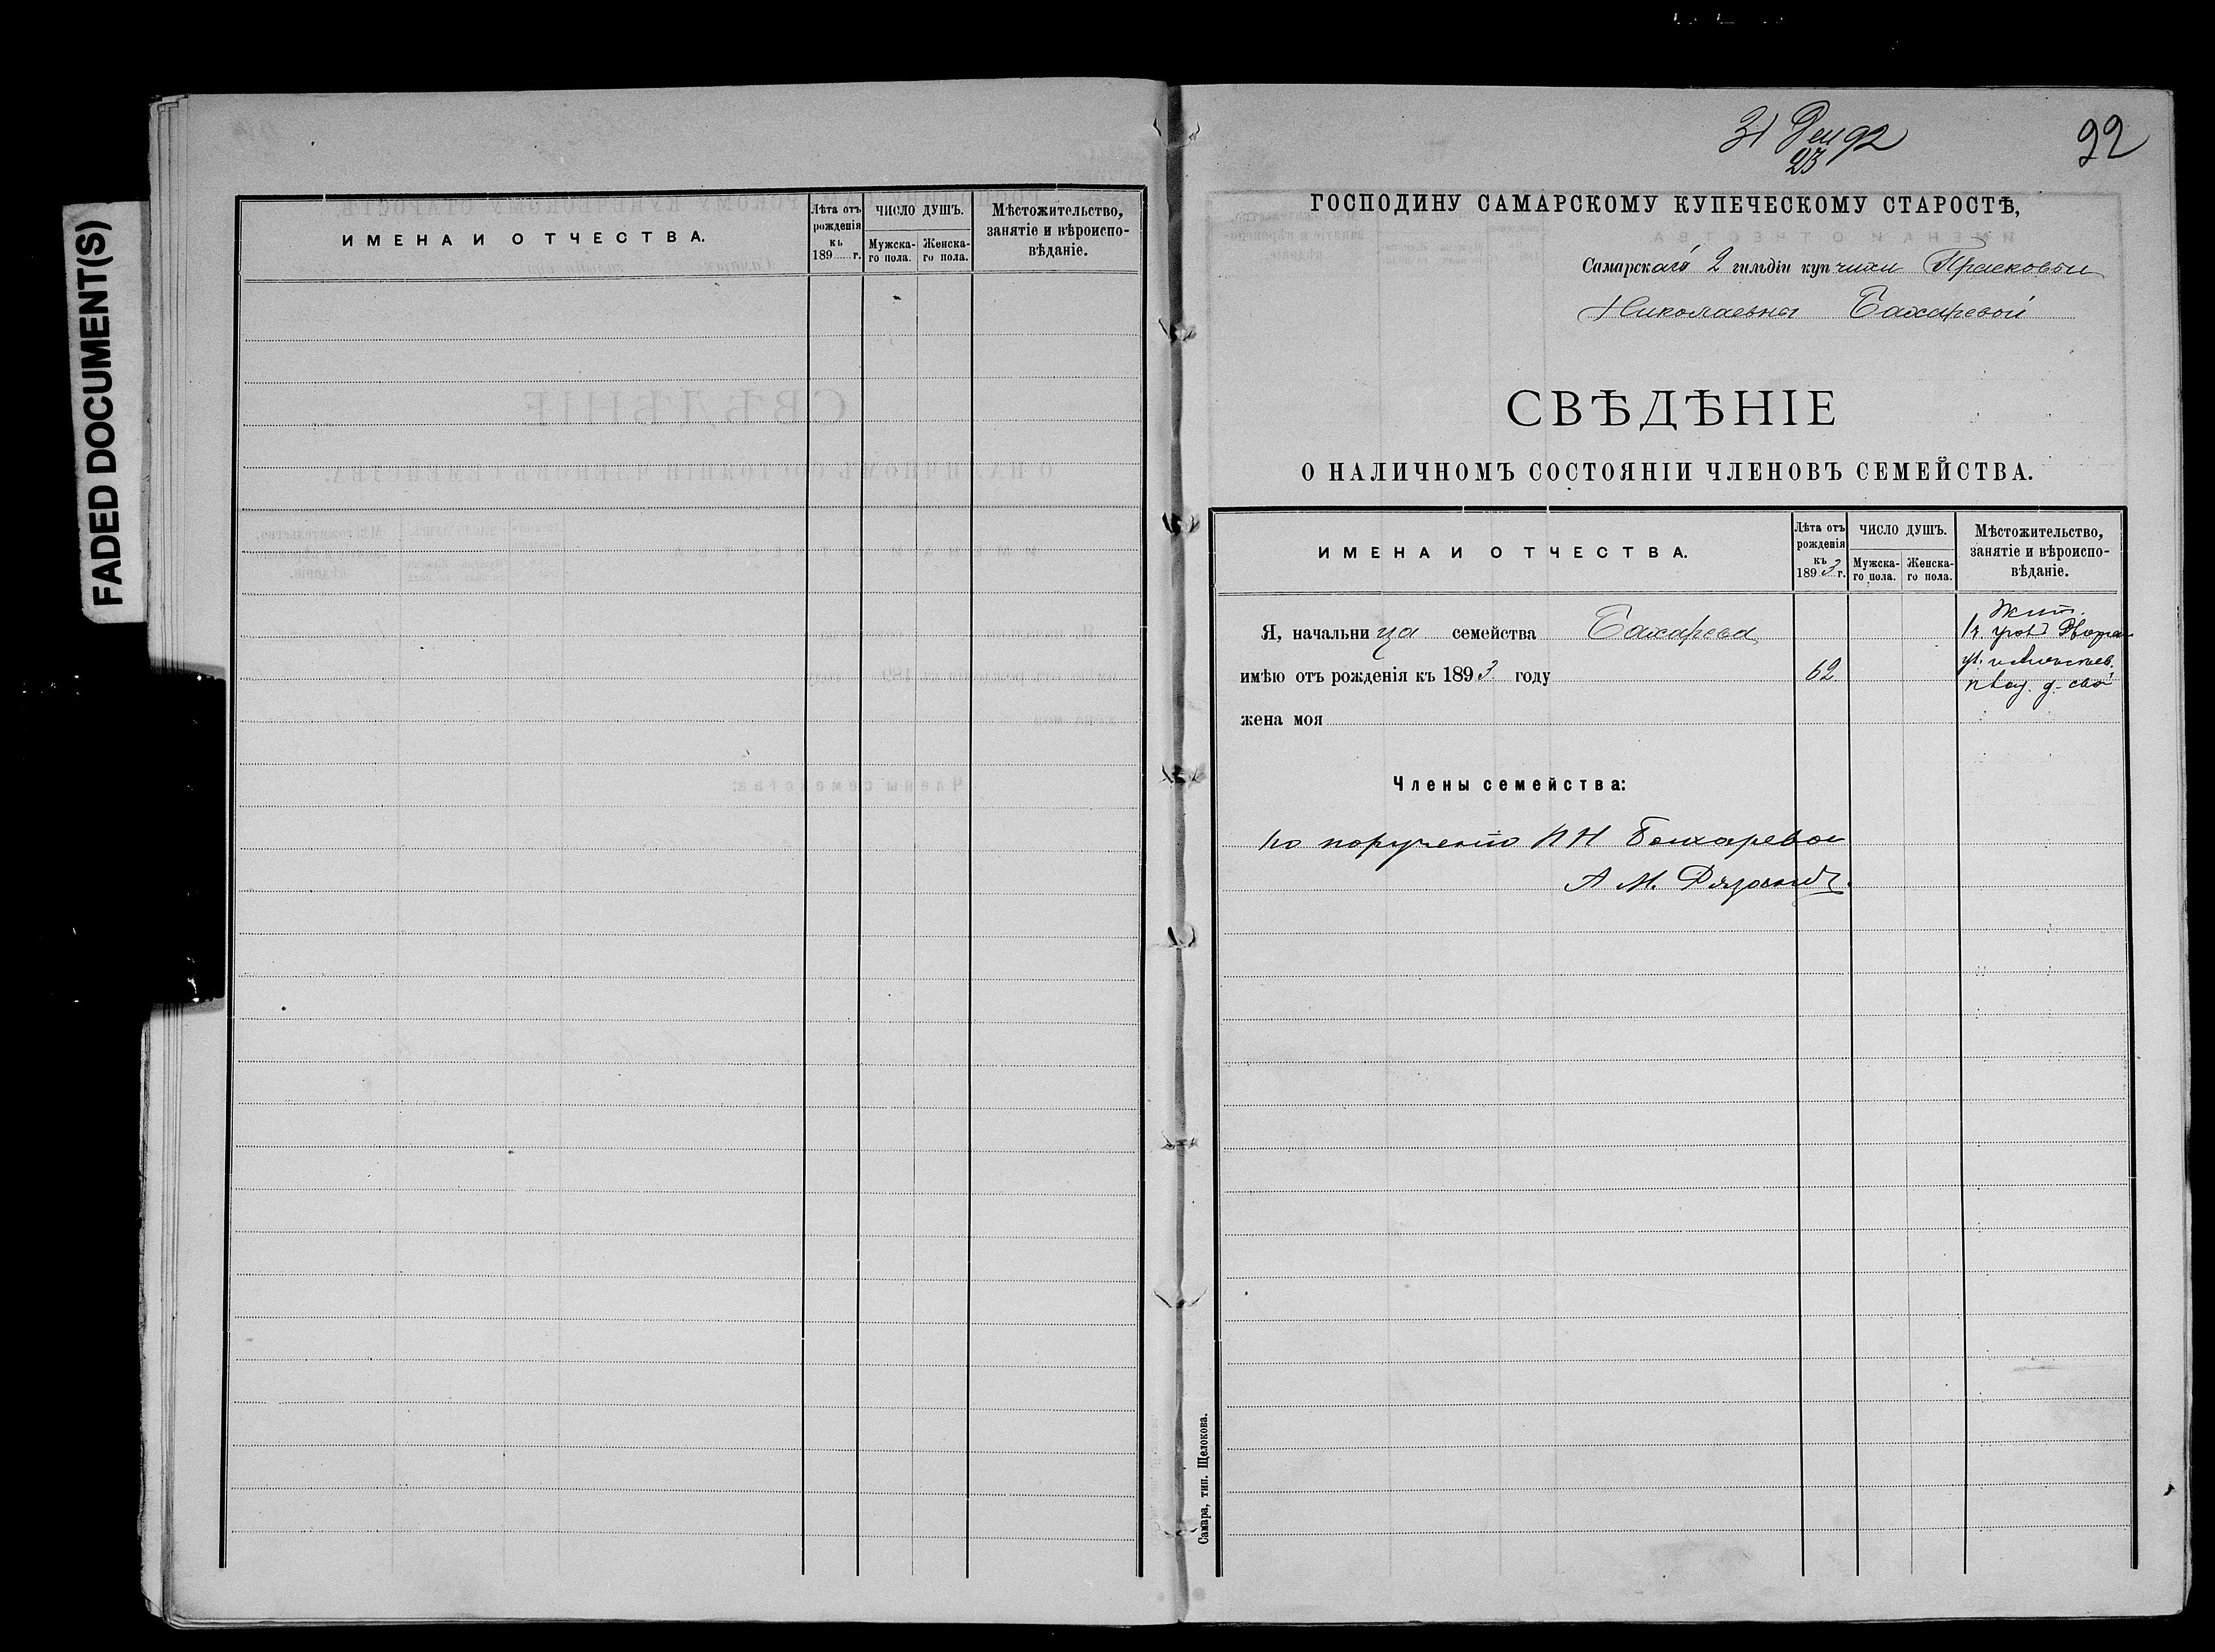 FADED DOCUMENT(S)
ИМЕНА И ОТЧЕСТВА.
Лѣта отъ рожденія къ 189 г.
ЧИСЛО ДУШЪ.
Мужска-го пола.
Женска-го пола.
Мѣстожительство, занятіе и вѣроисповѣданіе.
31 Дек 92
23
92
ГОСПОДИНУ САМАРСКОМУ КУПЕЧЕСКОМУ СТАРОСТѢ,
Самарской 2 гильдіи купчихи Прасковьи
Николаевны Бахаревой
СВѢДѢНІЕ
О НАЛИЧНОМЪ СОСТОЯНІИ ЧЛЕНОВЪ СЕМЕЙСТВА.
ИМЕНА И ОТЧЕСТВА.
Лѣта отъ рожденія къ 1893 г.
ЧИСЛО ДУШЪ.
Мужска-го пола.
Женска-го пола.
Мѣстожительство, занятіе и вѣроиспо-вѣданіе.
Я, начальница семейства Бахарева
имѣю отъ рожденія къ 1893 году 62
жена моя
Жит.
д. сво
Члены семейства:
по порученію П Н Бахаревой
А М.
Самара, тип. Щелокова.